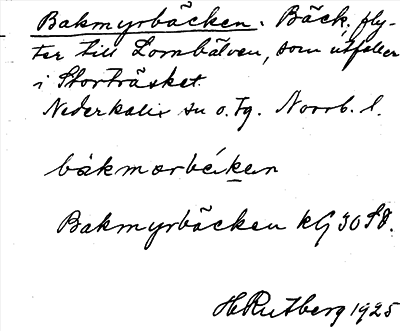 Bakmyrbäcken. Bäck. fly-
ter till Lombälven, som utfaller
i Storträsket.
Nederkalix sn o. tg. Norrb. l.
båkmɷrbéken
Bakmyrbäcken kG 30 SO.
H Rutberg 1925